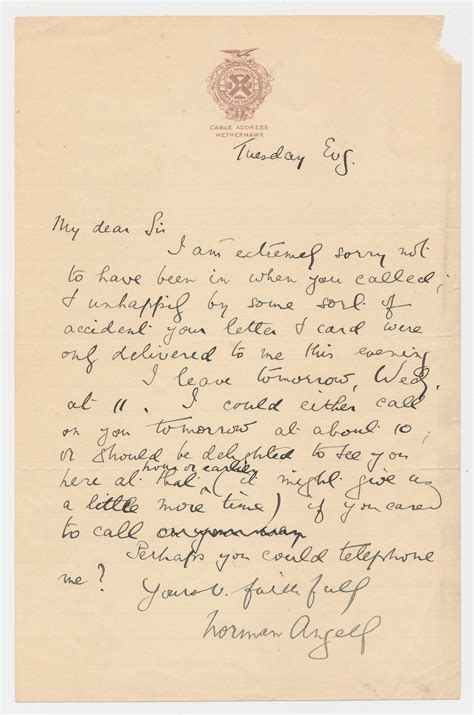 CABLE ADDRESS
WETHERHAWK
Tuesday Evg.
My dear Sir
I am extremely sorry not
to have been in when you called;
& unhappily by some sort of
accident your letter & card were
only delivered to me this evening
I leave tomorrow, Wed,
at 11. I could either call
on you tomorrow at about 10;
or should be delighted to see you
hour or earlier
here at that (it might give us
a little more time) if you cared
to call on your way
Perhaps you could telephone
me?
Yours v. faithfully
Norman Angell